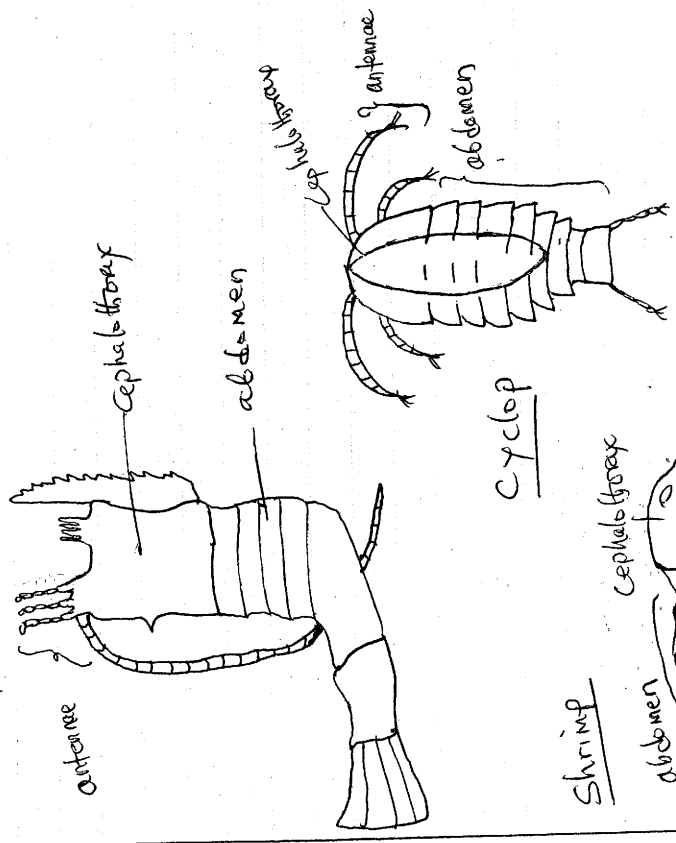 antennae
cephalothorax
abdomen
Cephalothorax
2 antennae
abdomen
Cyclop
Shrimp
Cephalothorax
abdomen